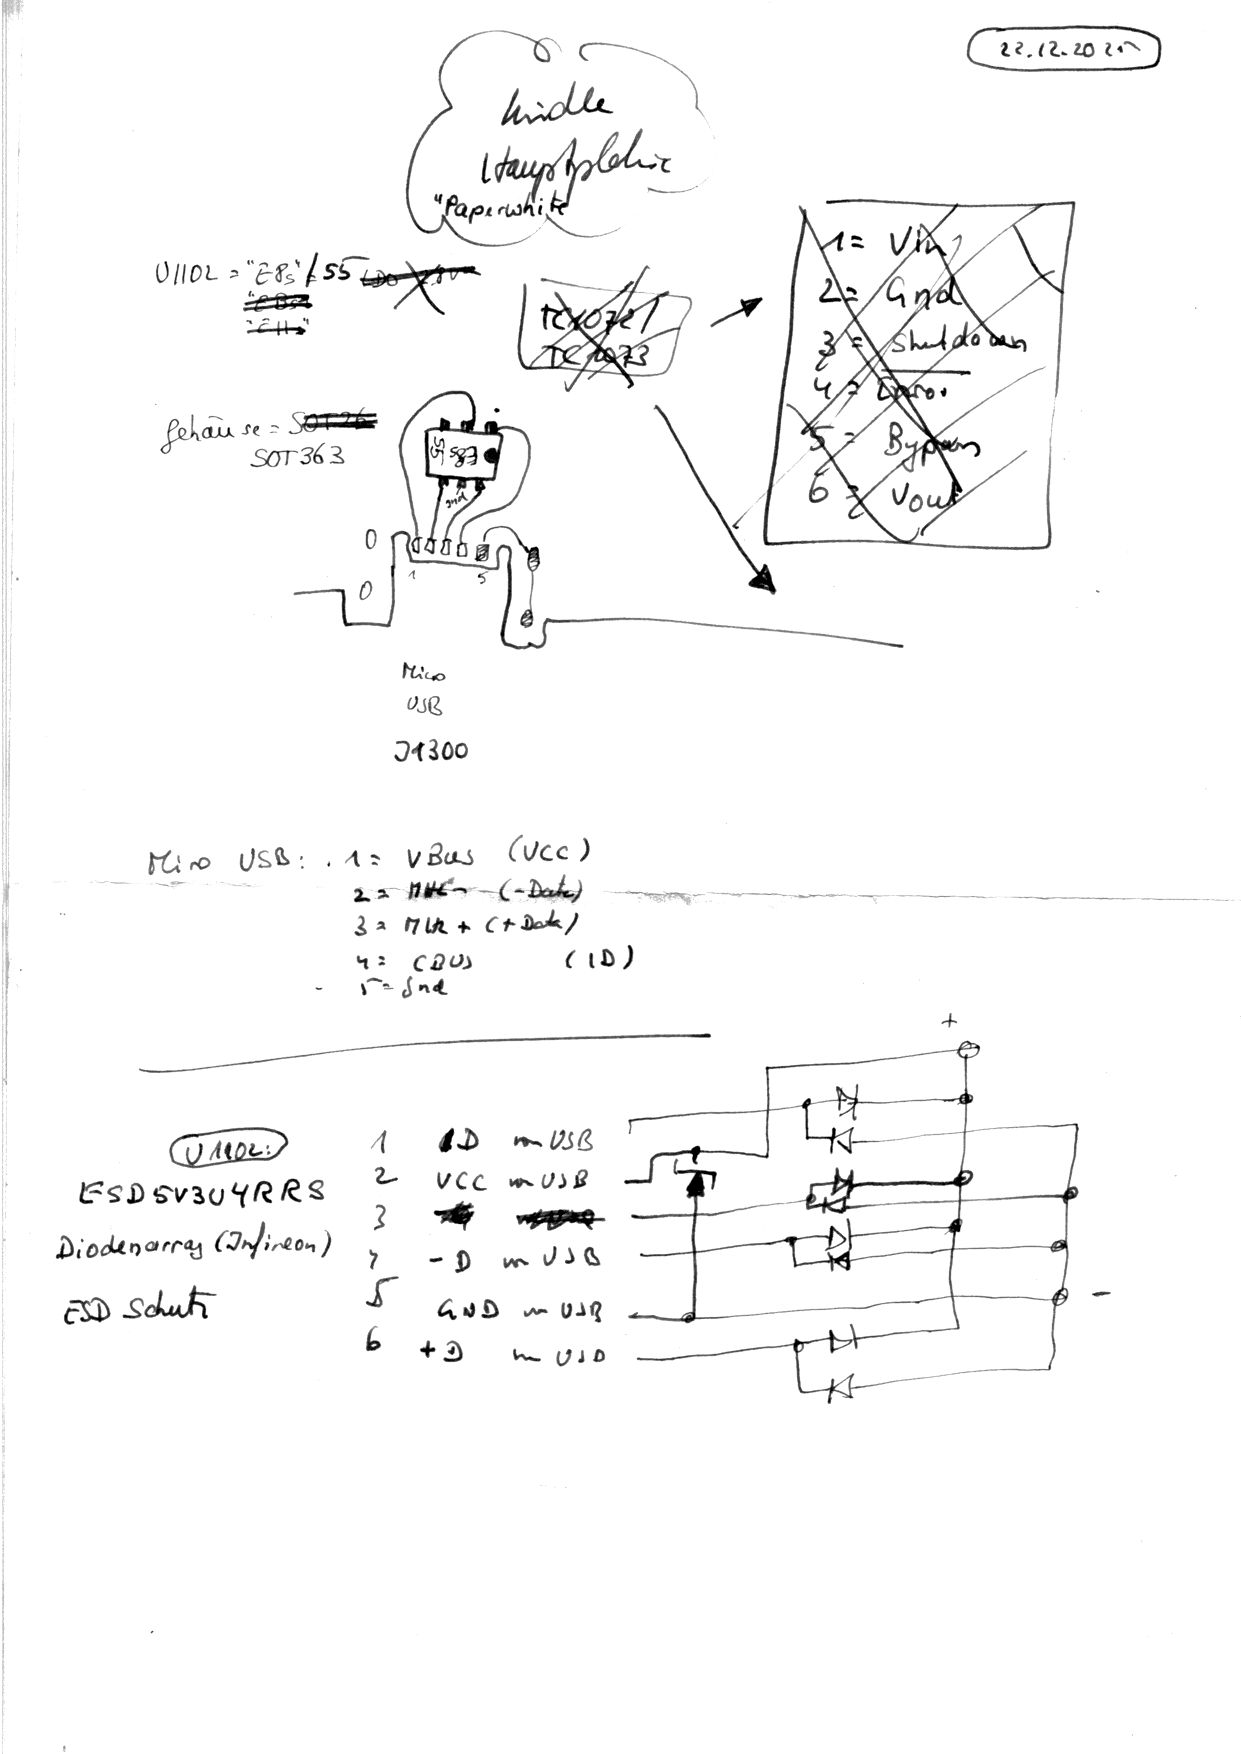 22.12.2025
Kindle
Hauptplatine
"Paperwhite
U1102 = "E8s" / 55
Gehäuse = SOT26
SOT363
TC1072 /
TC1073
1 = Vin
2 = Gnd
3 = Shutdown
4 = Error
5 = Bypass
6 = Vout
55
E8s
gnd
0
0
1
5
Micro
USB
J1300
Micro USB: 1 = VBus (VCC)
2 = (-Data)
3 = + (+Data)
4 = CBUS (ID)
5 = Gnd
+
U1102:
ESD5V3U4RRS
Diodenarray (Infineon)
ESD Schutz
1 ID USB
2 VCC USB
3
4 -D USB
5 GND USB
6 +D USB
-